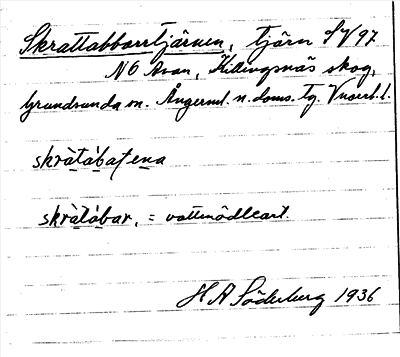 Skrattabborrtjärnen, tjärn SV/97
NO Avan, Killingsnäs skog,
Grundsunda sn. Ångerml. n. doms. tg. Vnorrl. l.
skràtábaṭena
skràtábar, = vattenödleart
H A Söderberg 1936